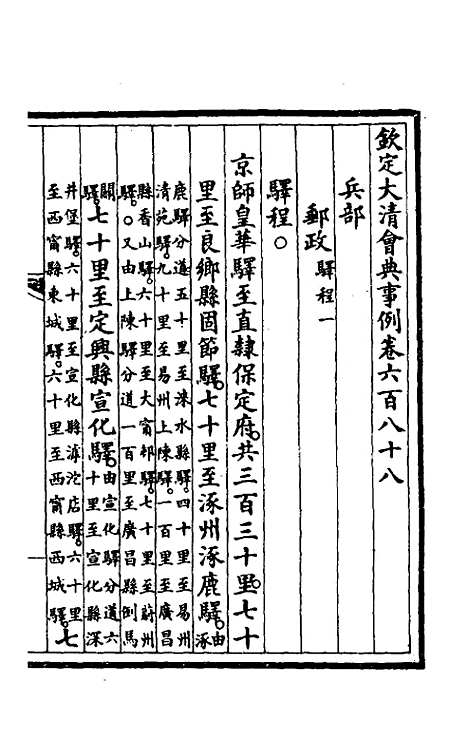 欽定大清會典事例卷六百八十八
兵部
郵政驛程一
驛程○
京師皇華驛至直隸保定府共三百三十里七十
里至良鄉縣固節驛七十里至涿州涿鹿驛由涿
鹿驛分道五十里至淶水縣驛四十里至易州
清苑驛九十里至易州上陳驛一百里至廣昌
縣香山驛六十里至大甯村驛七十里至蔚州
驛○又由上陳驛分道一百里至廣昌縣倒馬
關驛七十里至定興縣宣化驛由宣化驛分道六
十里至宣化縣深
井堡驛六十里至宣化縣滹沱店驛六十里
至西甯縣東城驛六十里至西甯縣西城驛七